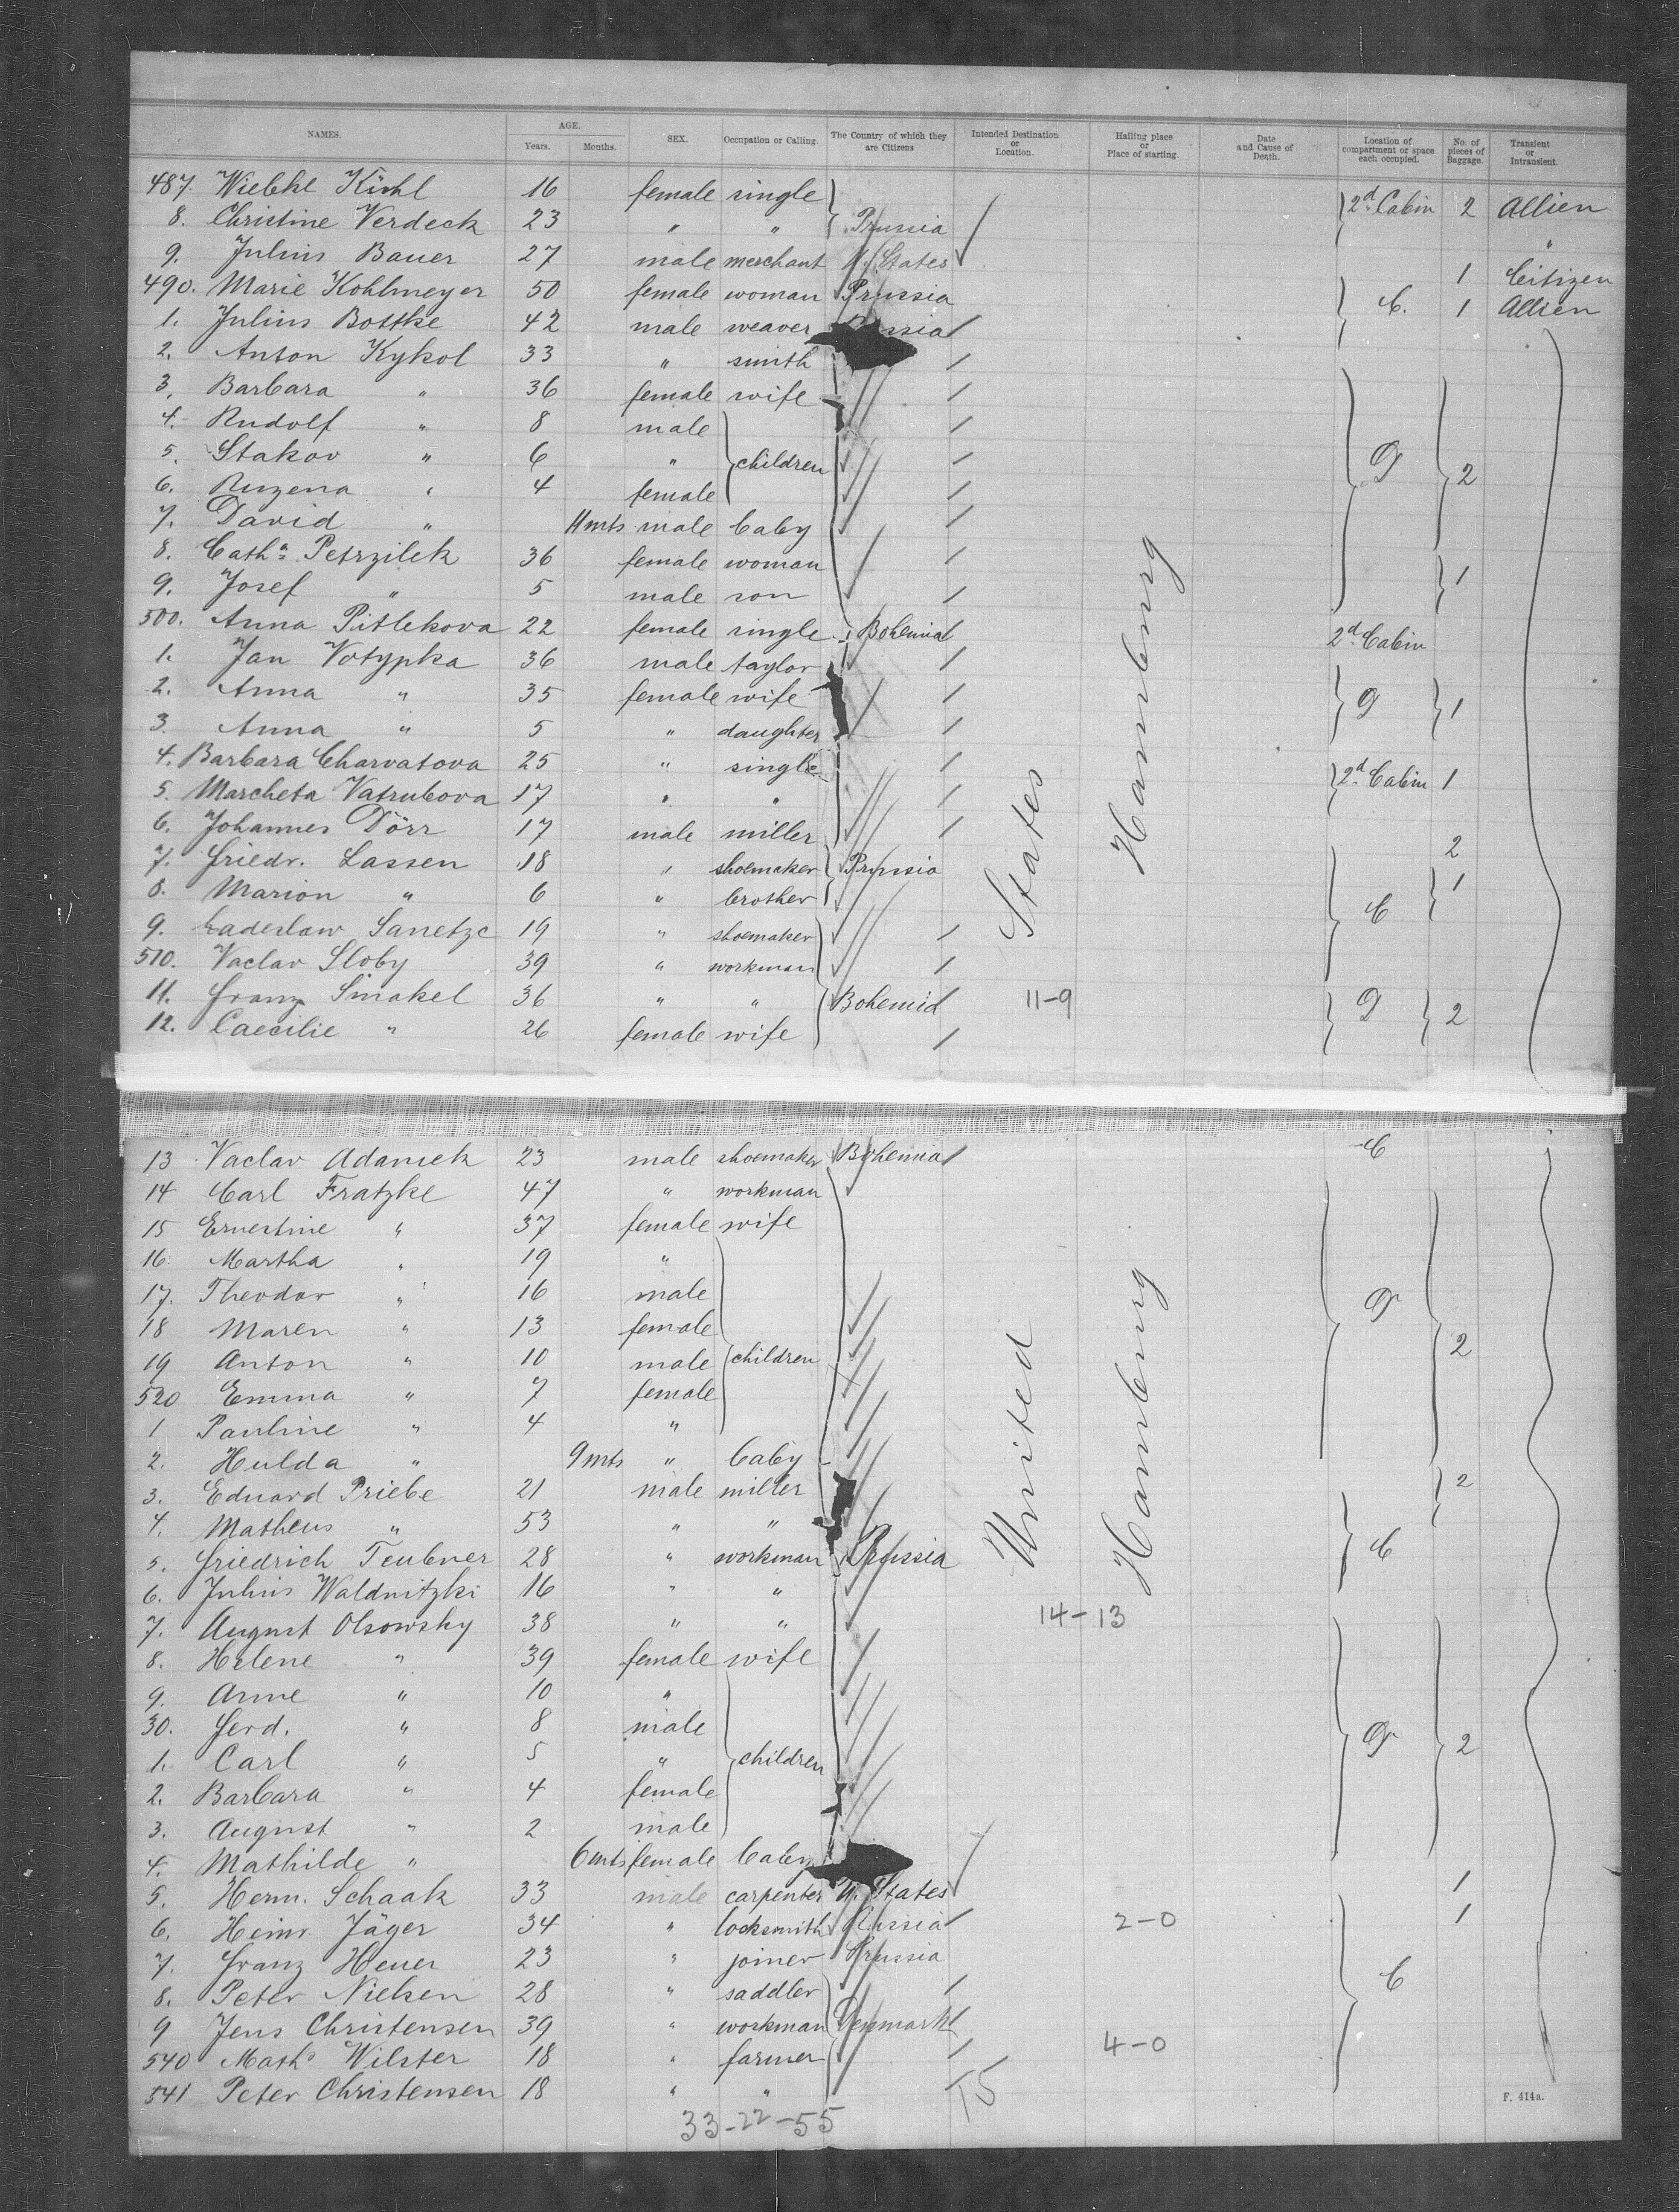 NAMES. AGE. Years. Months. SEX. Occupation or Calling. The Country of which they are Citizens Intended Destination or Location. Hailing place or Place of starting. Date and Cause of Death. Location of compartment or space each occupied. No. of pieces of Baggage. Transient or Intransient.
487. Wiebke Kühl 16 female single 2d Cabin 2 Allien
8. Christine Verdeck 23 " " Prussia "
9. Julius Bauer 27 male merchant U. States 1 Citizen
490. Marie Kohlmeyer 50 female woman Prussia C. 1 Allien
1. Julius Bottke 42 male weaver
2. Anton Kykol 33 " smith
3. Barbara " 36 female wife
4. Rudolf " 8 male
5. Stakov " 6 " children G 2
6. Ruzena " 4 female
7. David " 11 mts male baby
8. Catha Petrzilek 36 female woman 1
9. Josef " 5 male son
500. Anna Pitlekova 22 female single Bohemia 2d Cabin
1. Jan Votypka 36 male taylor
2. Anna " 35 female wife G 1
3. Anna " 5 " daughter
4. Barbara Charvatova 25 " single 2d Cabin 1
5. Marcheta Vatrubova 17 " "
6. Johannes Dörr 17 male miller 2
7. Friedr. Lassen 18 " shoemaker Prussia 1
8. Marion " 6 " brother C
9. Ladeslaw Sanetze 19 " shoemaker
510. Vaclav Sloby 39 " workman
11. Franz Smakel 36 " " Bohemia 11-9 G 2
12. Caecilie " 26 female wife
States
Hamburg
13 Vaclav Adamek 23 male shoemaker Bohemia C
14 Carl Fratzke 47 " workman
15 Ernestine " 37 female wife
16. Martha " 19 "
17. Theodor " 16 male G
18 Maren " 13 female
19 Anton " 10 male children 2
520 Emma " 7 female
1 Pauline " 4 "
2. Hulda " 9 mts " baby
3. Eduard Priebe 21 male miller 2
4. Matheus " 53 " "
5. Friedrich Teubner 28 " workman Prussia C
6. Julius Waldnitzki 16 " "
7. August Olsowsky 38 " " 14-13
8. Helene " 39 female wife
9. Anne " 10 "
30. Ferd. " 8 male
1. Carl " 5 " children G 2
2. Barbara " 4 female
3. August " 2 male
4. Mathilde " 6 mts female baby
5. Herm. Schaak 33 male carpenter U. States 1
6. Heinr. Jäger 34 " locksmith Russia 2-0 1
7. Franz Heuer 23 " joiner Prussia
8. Peter Nielsen 28 " saddler C
9 Jens Christensen 39 " workman Denmark
540 Maths Wilster 18 " farmer 4-0
541 Peter Christensen 18 " "
United
Hamburg
33-22-55
F. 414a.